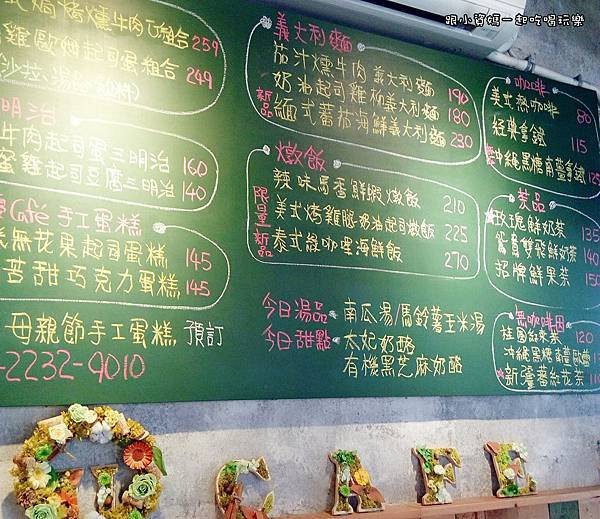 跟小資媽一起吃喝玩樂
燻牛肉
組合 259
起司蛋組合 249
沙拉
明治
牛肉起司蛋三明治 160
蜜雞起司豆腐三明治 140
Café手工蛋糕
無花果起司蛋糕 145
苦甜巧克力蛋糕 145
母親節手工蛋糕 預訂
-2232-9010
義大利麵
茄汁燻牛肉義大利麵 190
奶油起司雞柳義大利麵 180
新品 緬式蕃茄海鮮義大利麵 230
燉飯
辣味馬香鮮蝦燉飯 210
限量 美式烤雞腿奶油起司燉飯 225
新品 泰式綠咖哩海鮮飯 270
今日湯品: 南瓜湯/馬鈴薯玉米湯
今日甜點: 太妃奶酪
有機黑芝麻奶酪
咖啡
美式熱咖啡 80
經典拿鐵 115
沖繩黑糖南薑拿鐵 125
茶品
玫瑰鮮奶茶 135
鴛鴦雙飛鮮奶茶 140
招牌鮮果茶 150
無咖啡因
桂圓紅棗茶 120
沖繩黑糖南薑歐蕾
新疆蕃紅花茶 110
CAFE